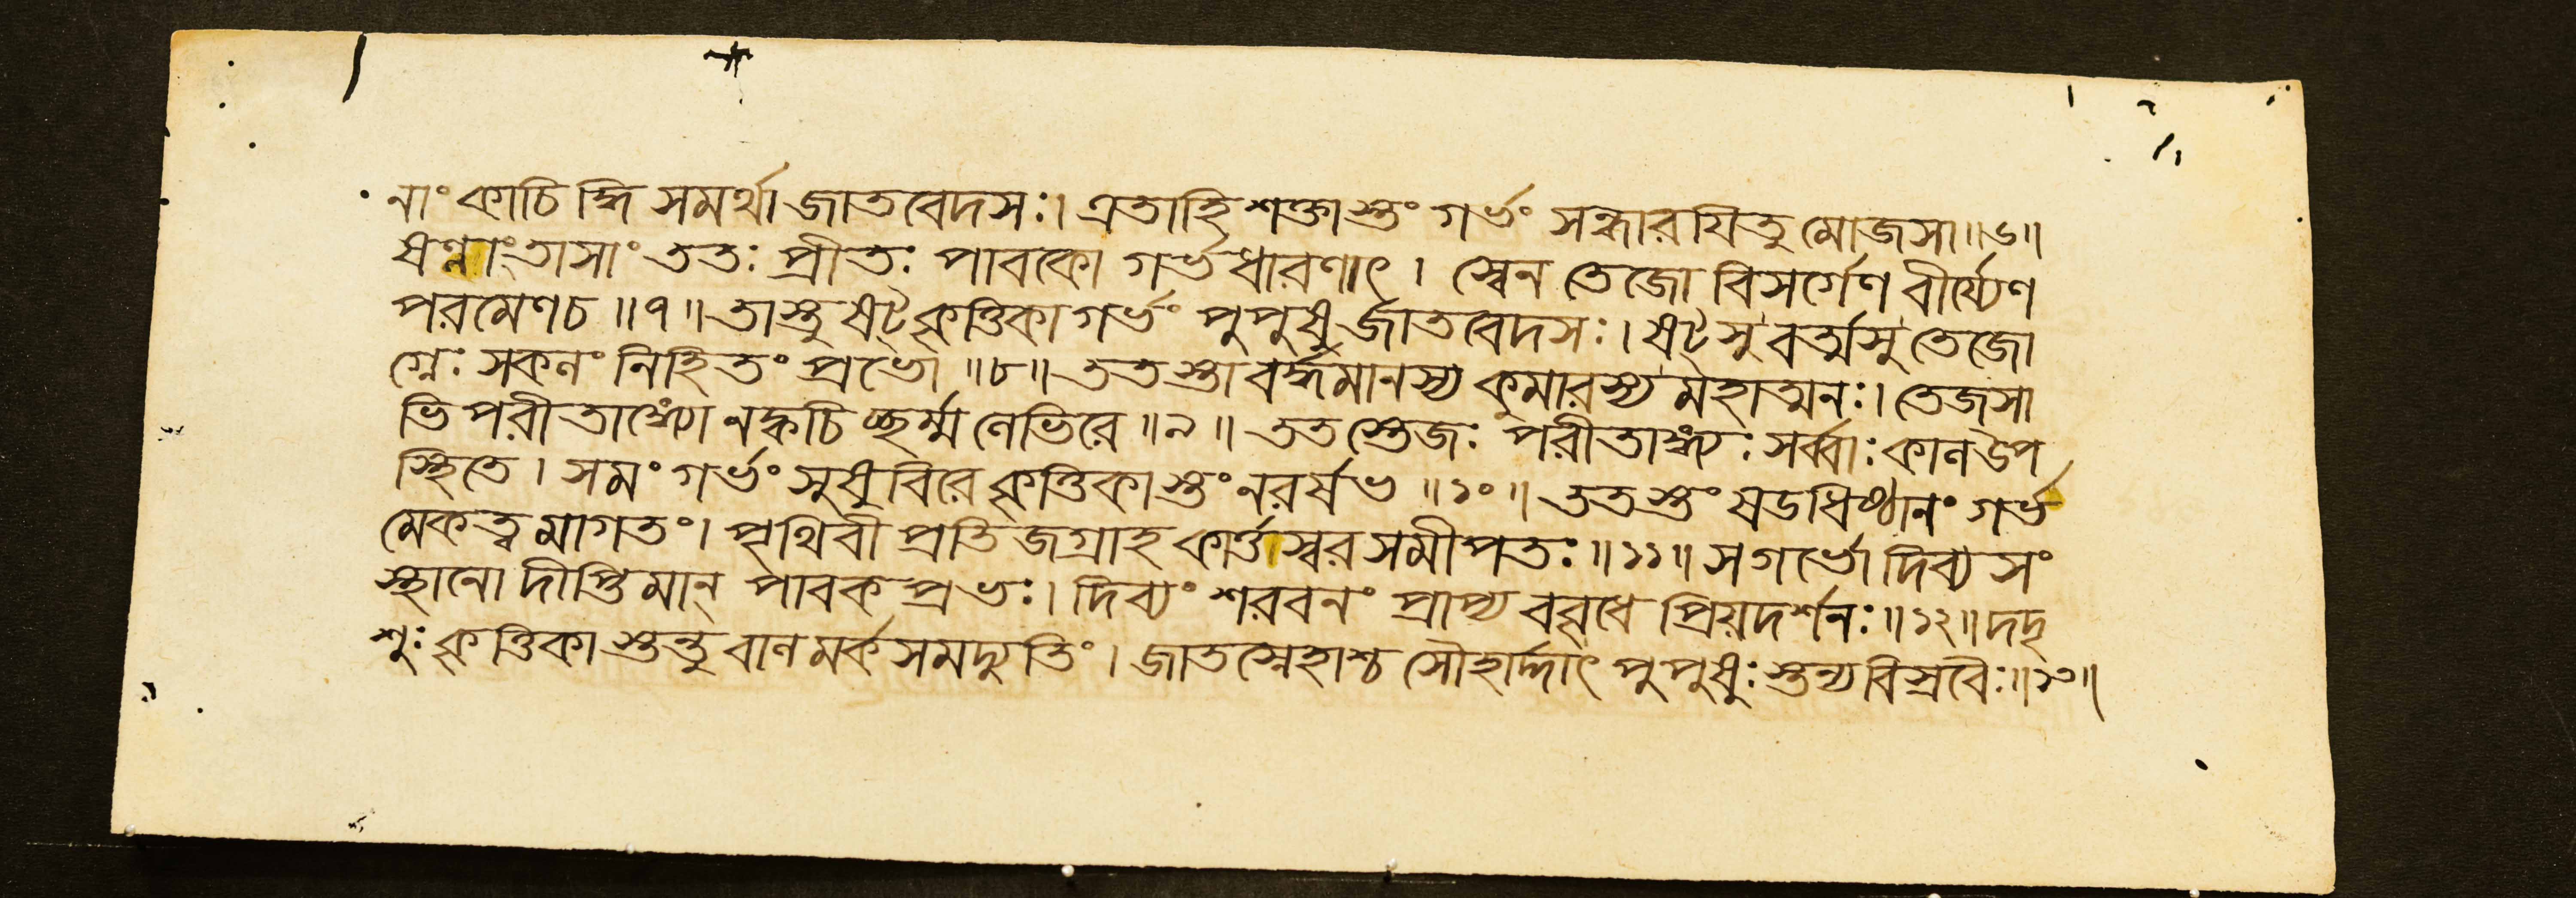 নাং কাচিদ্ধি সমর্থা জাতবেদসঃ। এতাহি শক্তাস্তং গর্ভং সন্ধারযিতুমোজসা॥৬॥
ষণ্নাং তাসাং ততঃ প্রীতঃ পাবকো গর্ভধারণাৎ। স্বেন তেজোবিসর্গেণ বীর্য্যেণ
পরমেণ চ॥৭॥ তাস্তু ষট্ কৃত্তিকা গর্ভং পুপুষুর্জাতবেদসঃ। ষট্সু বর্ত্মসু তেজো
গ্নেঃ সকলং নিহিতং প্রভো॥৮॥ ততস্তা বর্দ্ধমানস্য কুমারস্য মহাত্মনঃ। তেজসা
ভিপরীতাঙ্গ্যো নক্বচিচ্ছর্ম্ম লেভিরে॥৯॥ ততস্তেজঃ পরীতাঙ্গ্যঃ সর্ব্বাঃ কাল উপ
স্থিতে। সমং গর্ভং সুষুবিরে কৃত্তিকাস্তং নরর্ষভ॥১০॥ ততস্তং ষডধিষ্ঠানং গর্ভ
মেকত্বমাগতং। পৃথিবী প্রতিজগ্রাহ কার্ত্তস্বরসমীপতঃ॥১১॥ স গর্ভো দিব্যসং
স্থানো দীপ্তিমান্ পাবকপ্রভঃ। দিব্যং শরবনং প্রাপ্য ববৃধে প্রিয়দর্শনঃ॥১২॥ দদৃ
শুঃ কৃত্তিকাস্তন্তু বালমর্কসমদ্যুতিং। জাতস্নেহাশ্চ সৌহার্দ্দাৎ পুপুষুঃ স্তন্যবিস্রবৈঃ॥১৩॥